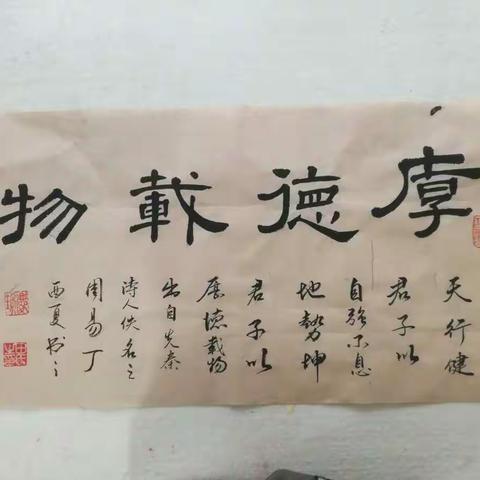 厚德載物
天行健
君子以
自強不息
地勢坤
君子以
厚德載物
出自先秦
诗人佚名之
周易丁
酉夏书之